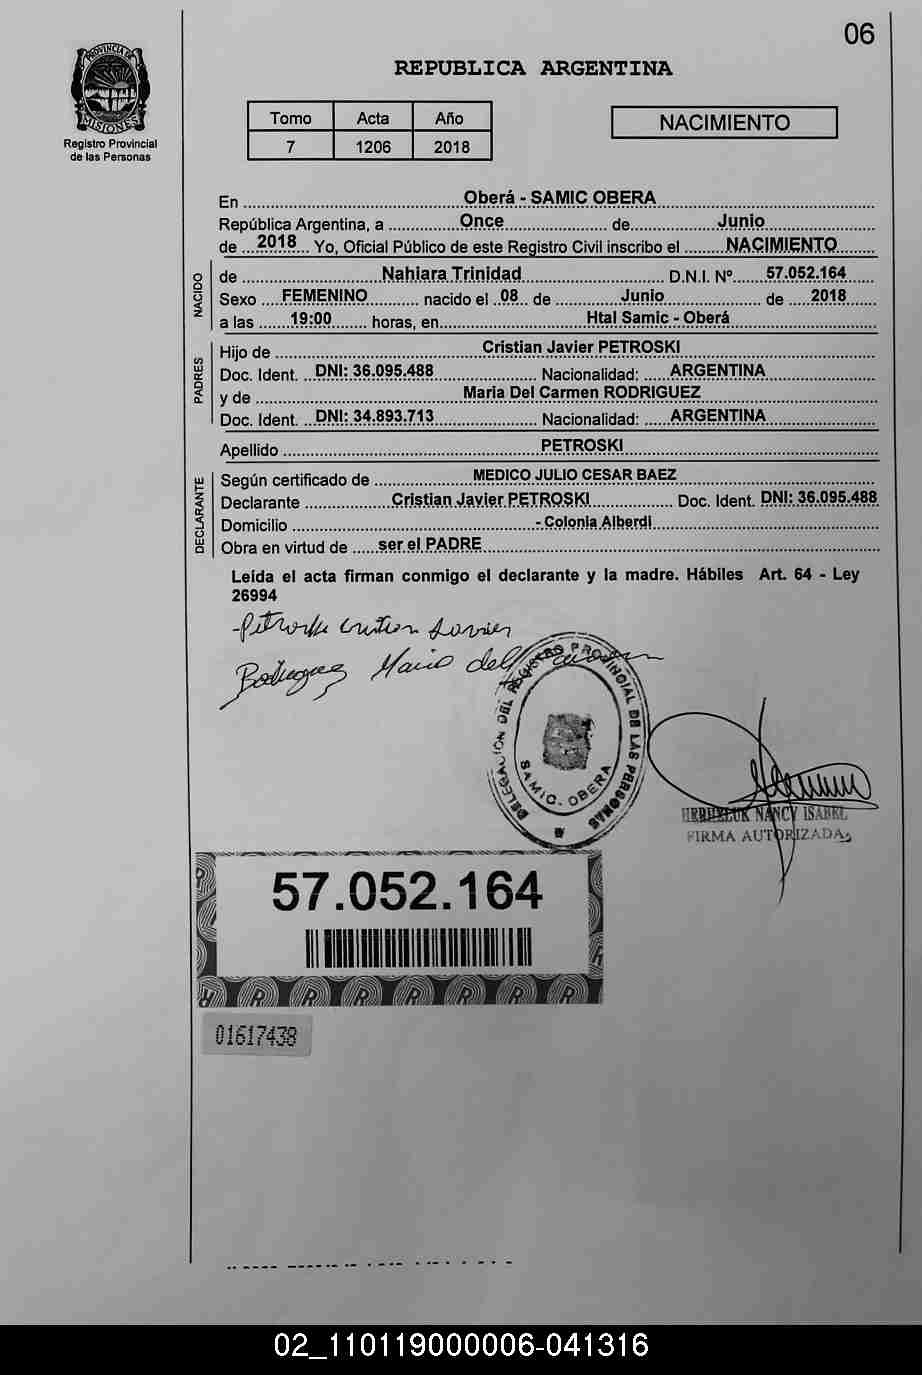 06
PROVINCIA DE
MISIONES
Registro Provincial
de las Personas
REPUBLICA ARGENTINA
Tomo Acta Año
7 1206 2018
NACIMIENTO
En Oberá - SAMIC OBERA
República Argentina, a Once de Junio
de 2018 Yo, Oficial Público de este Registro Civil inscribo el NACIMIENTO
NACIDO
de Nahiara Trinidad D.N.I. Nº 57.052.164
Sexo FEMENINO nacido el 08 de Junio de 2018
a las 19:00 horas, en Htal Samic - Oberá
PADRES
Hijo de Cristian Javier PETROSKI
Doc. Ident. DNI: 36.095.488 Nacionalidad: ARGENTINA
y de Maria Del Carmen RODRIGUEZ
Doc. Ident. DNI: 34.893.713 Nacionalidad: ARGENTINA
Apellido PETROSKI
DECLARANTE
Según certificado de MEDICO JULIO CESAR BAEZ
Declarante Cristian Javier PETROSKI Doc. Ident. DNI: 36.095.488
Domicilio - Colonia Alberdi
Obra en virtud de ser el PADRE
Leída el acta firman conmigo el declarante y la madre. Hábiles Art. 64 - Ley
26994
Petroski Cristian Javier
Rodriguez Maria del Carmen
DELEGACION DEL REGISTRO PROVINCIAL DE LAS PERSONAS
SAMIC. OBERA
NANCY ISABEL
FIRMA AUTORIZADA
57.052.164
01617438
02_110119000006-041316